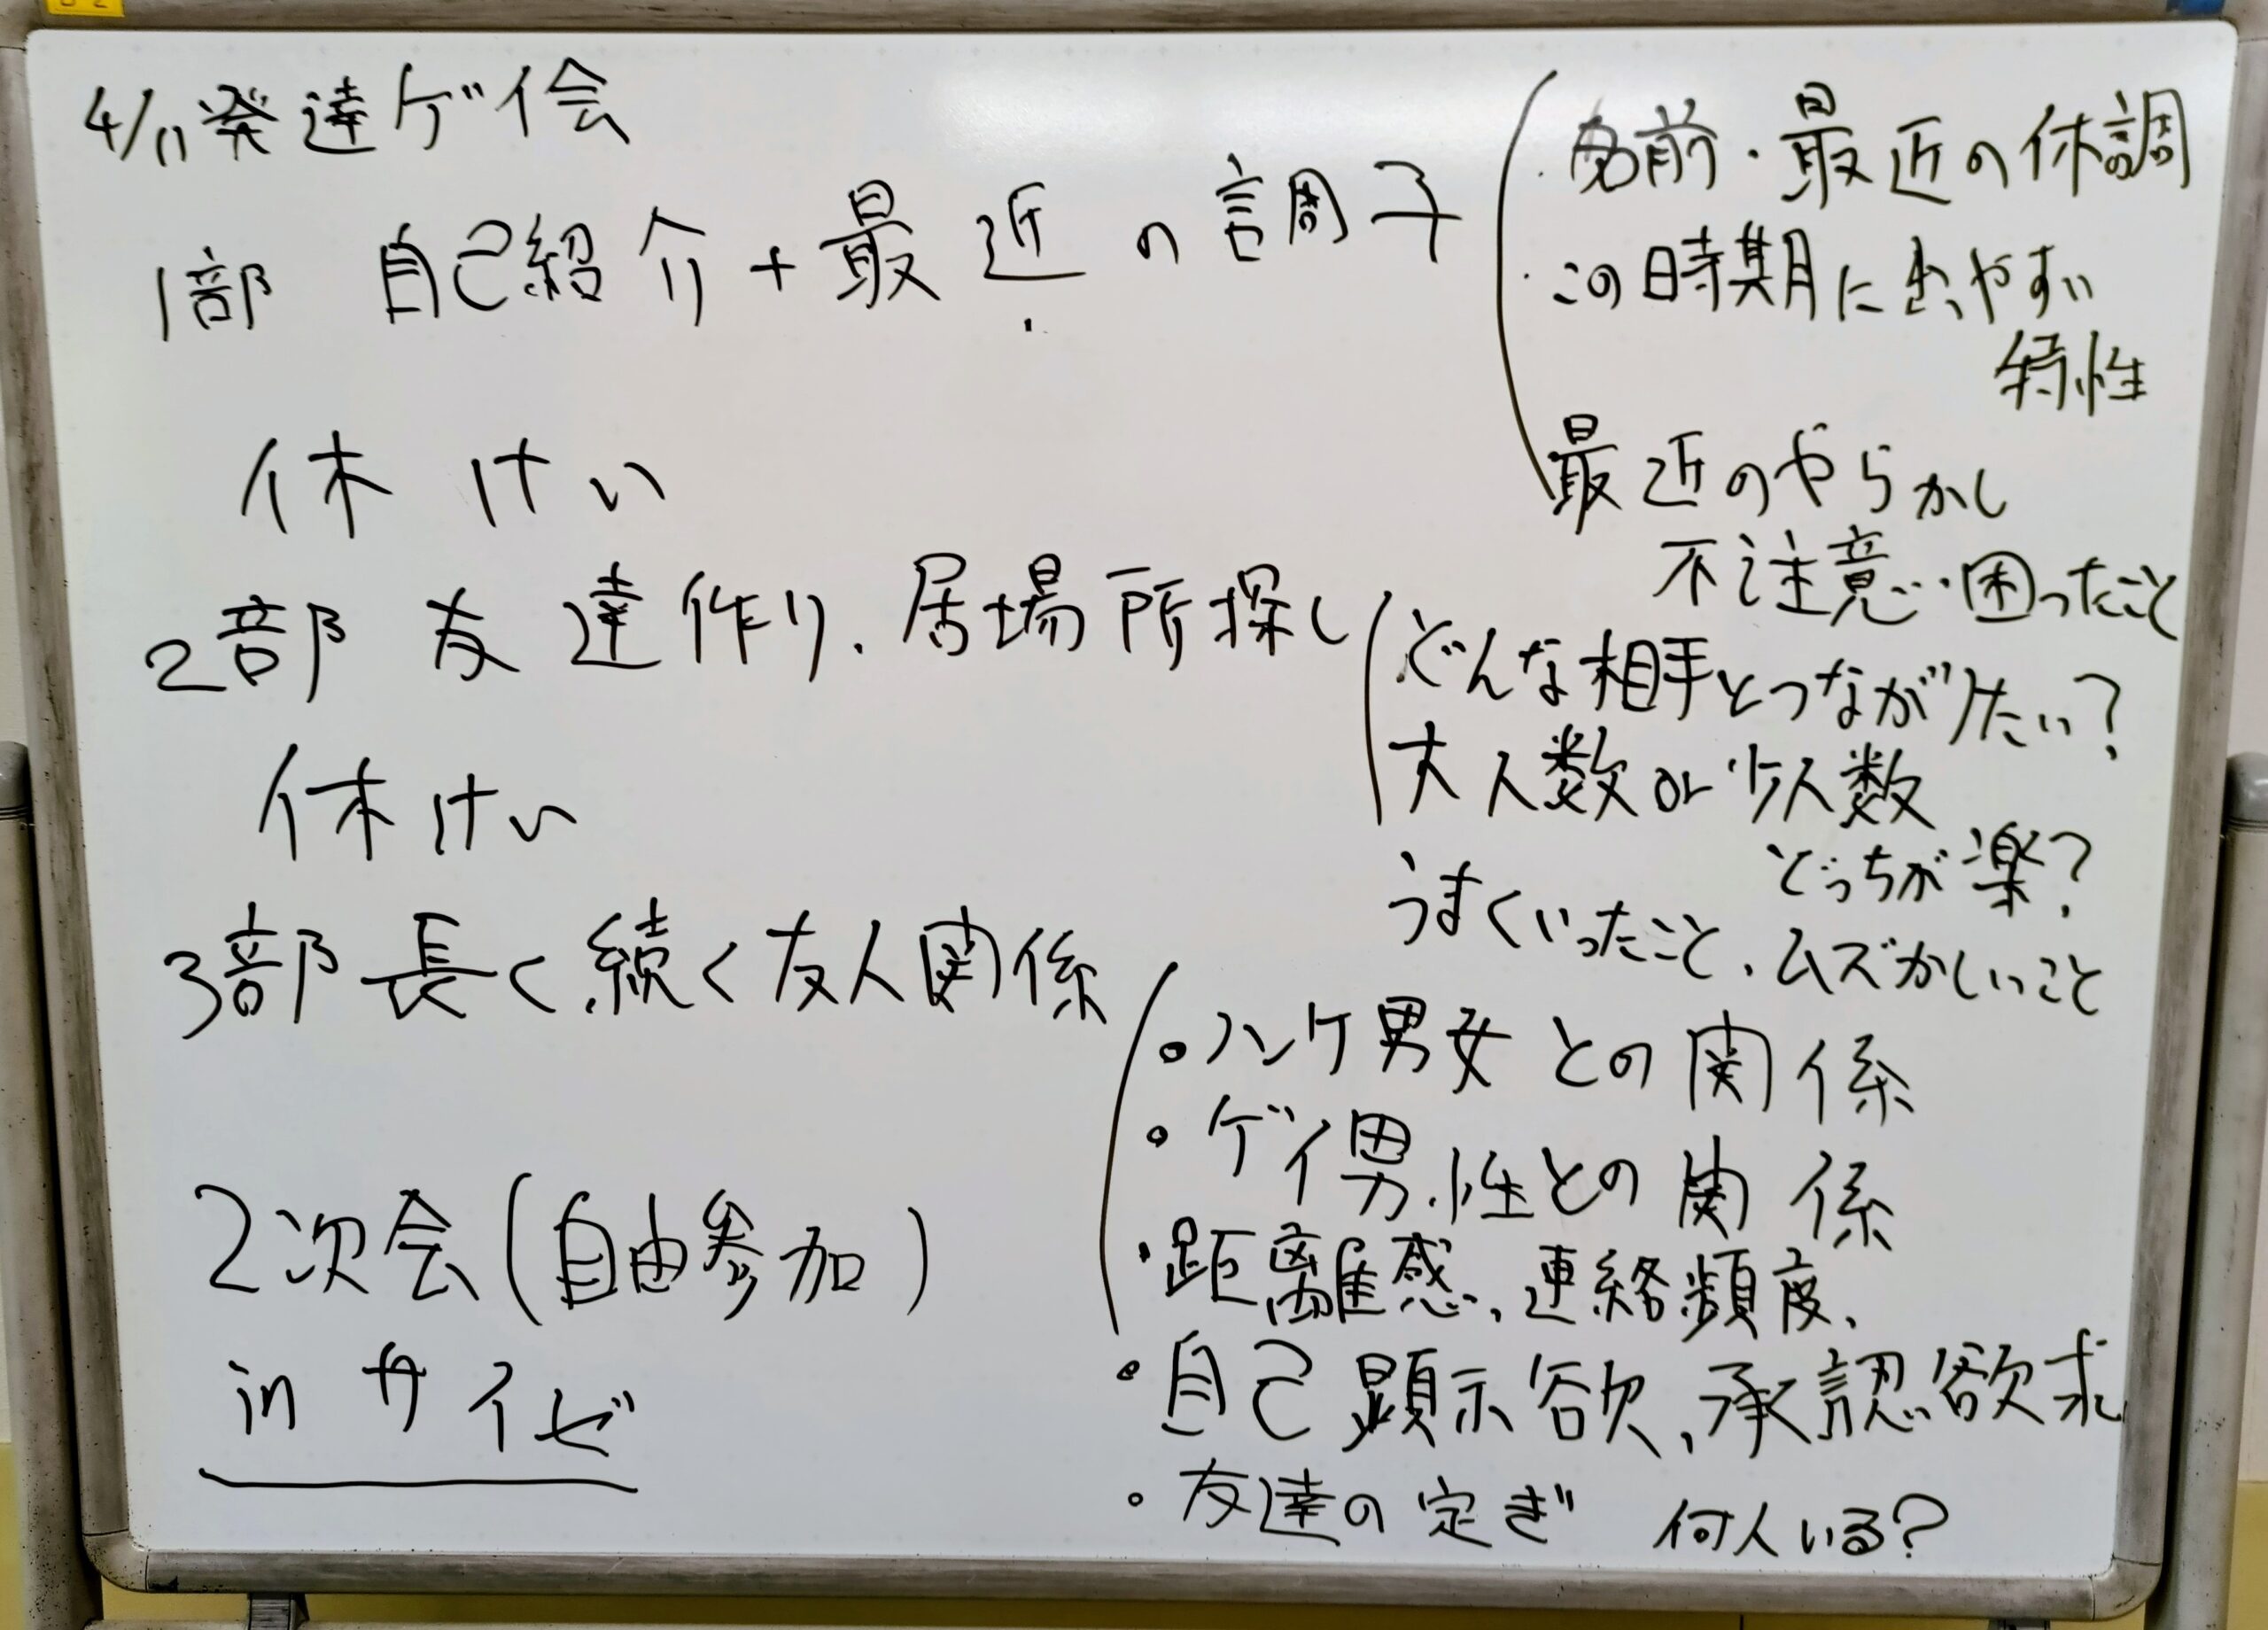 4/11発達ゲイ会
1部 自己紹介+最近の調子
・名前・最近の体調
・この時期に出やすい
特性
最近のやらかし
不注意・困ったこと
休けい
2部 友達作り、居場所探し
どんな相手とつながりたい?
大人数or少人数
どっちが楽?
うまくいったこと、ムズかしいこと
休けい
3部 長く続く友人関係
・ノンケ男女との関係
・ゲイ男性との関係
・距離感、連絡頻度、
・自己顕示欲、承認欲求
・友達の定ぎ 何人いる?
2次会(自由参加)
in サイゼ